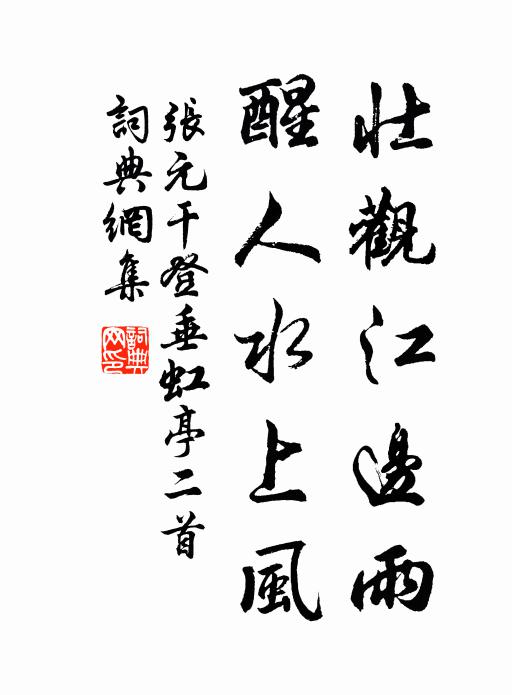 壯觀江邊雨
醒人水上風
張元干登垂虹亭二首
詞典網集
詞典網印